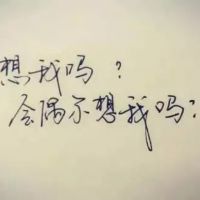 想我吗？
会偶尔想我吗？